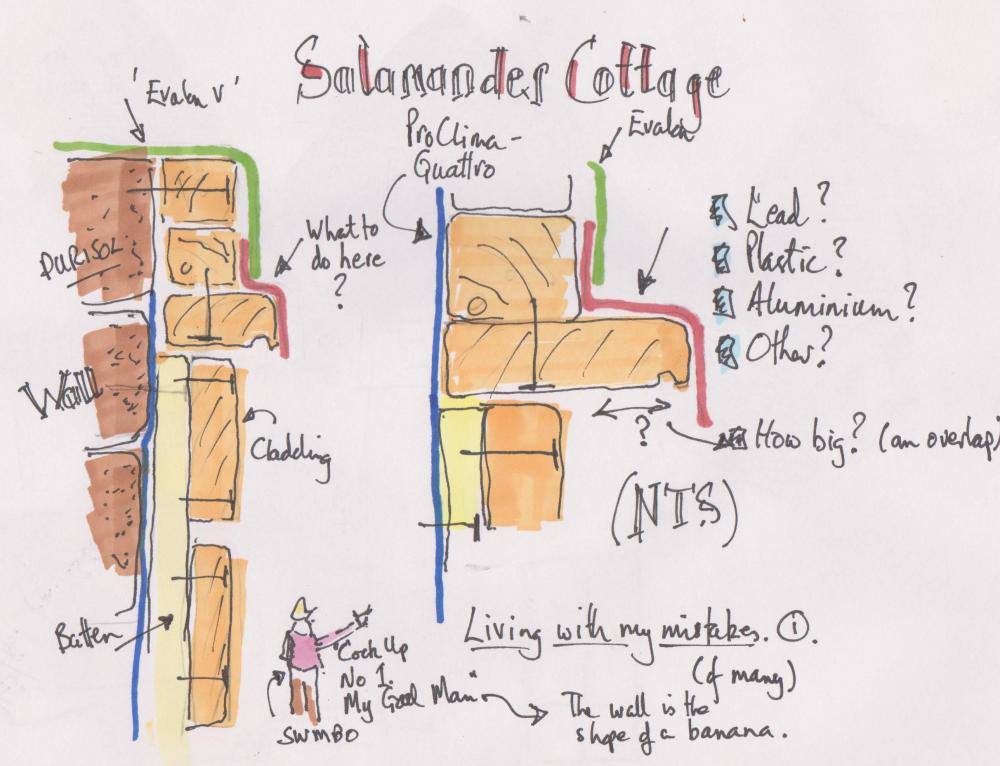 Salamander Cottage
'Evalon V'
ProClima-
Quattro
Evalon
DURISOL
What to
do here
?
Lead?
Plastic?
Aluminium?
Other?
Wall
Cladding
?
How big? (an overlap)
(NTS)
Batten
SWMBO
"Cock Up
No 1.
My Good Man"
Living with my mistakes. ①.
(of many)
The wall is the
shape of a banana.